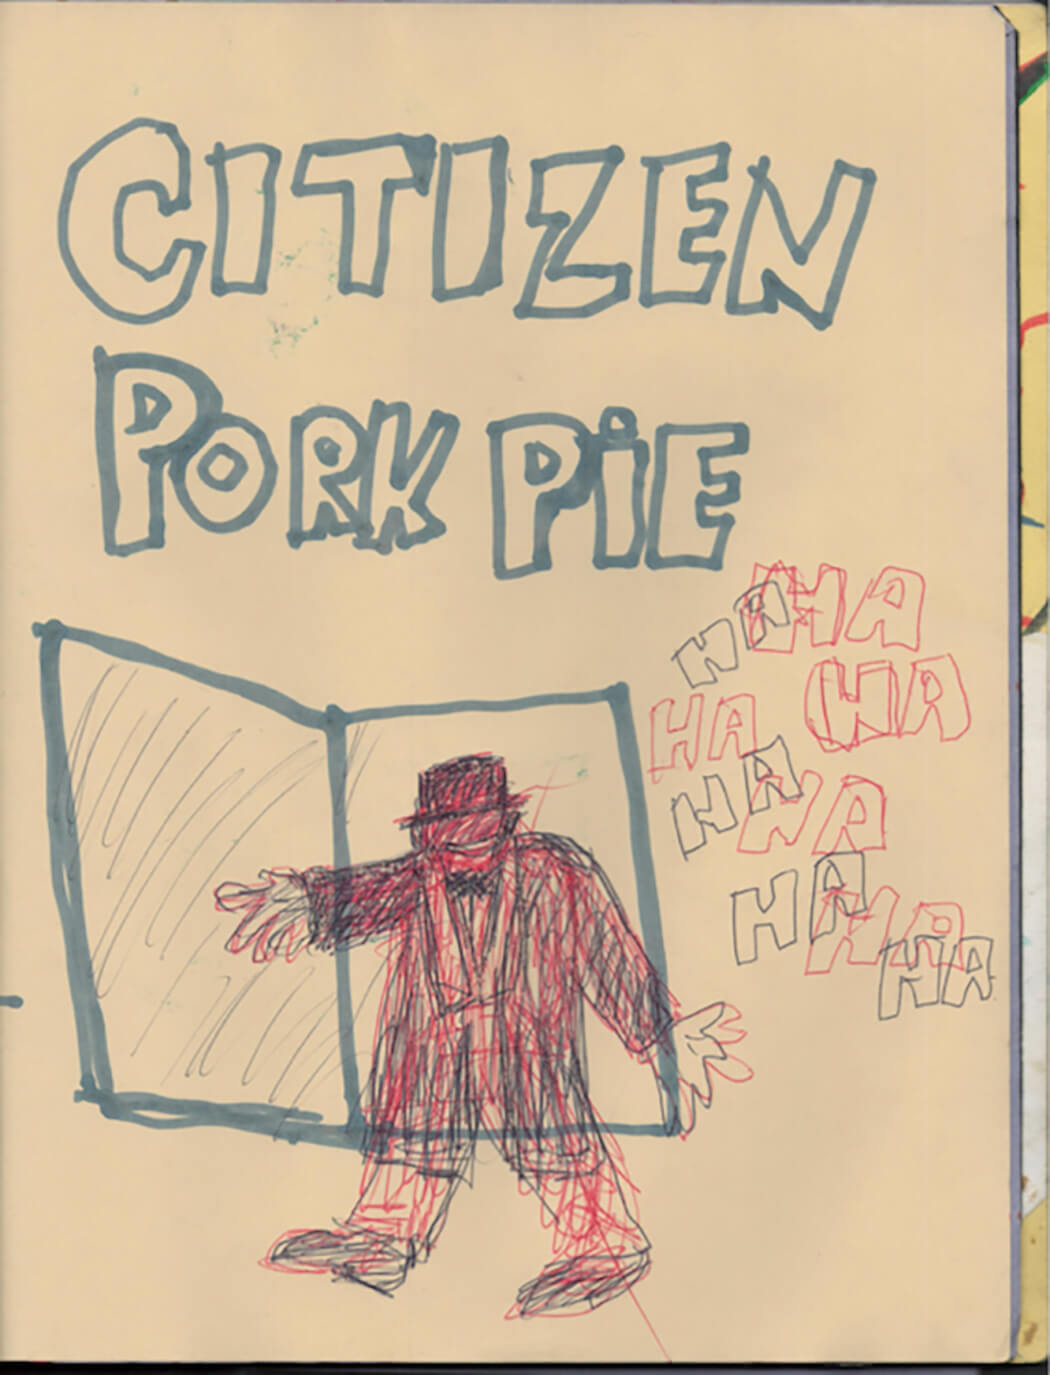 CITIZEN
PORK PiE
HA HA
HA HA
HA HA
HA HA HA